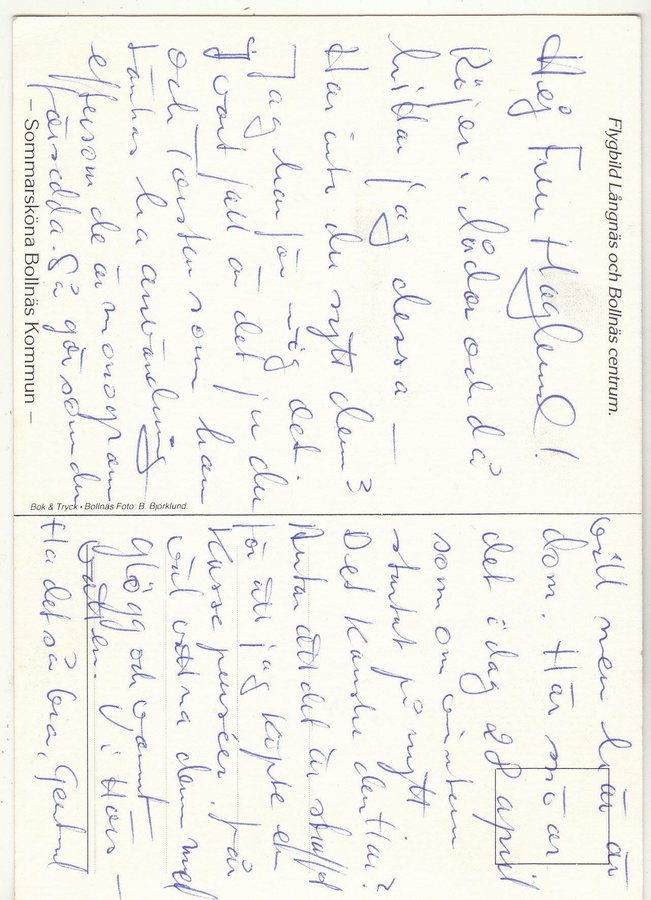 Flygbild Långnäs och Bollnäs centrum.
Hej Fru Haglund!
Röjer i lådor och då
hittar jag dessa –
Har inte du sytt dem?
Jag har för mig det.
I vart fall är det ju du
och Torsten som kan
tänkas ha användning
eftersom de är monogram
försedda. Så gör som du
– Sommarsköna Bollnäs Kommun –
Bok & Tryck • Bollnäs Foto: B. Björklund.
vill men här är
dom. Här snöar
det i dag 28 april
som om vintern
startat på nytt
Det kanske den har?
Antar att det är straffet
för att jag köpte en
kasse penséer. Får
väl vattna dem med
glögg och varmt
vatten. Vi Hörs –
Ha det så bra, Gertrud